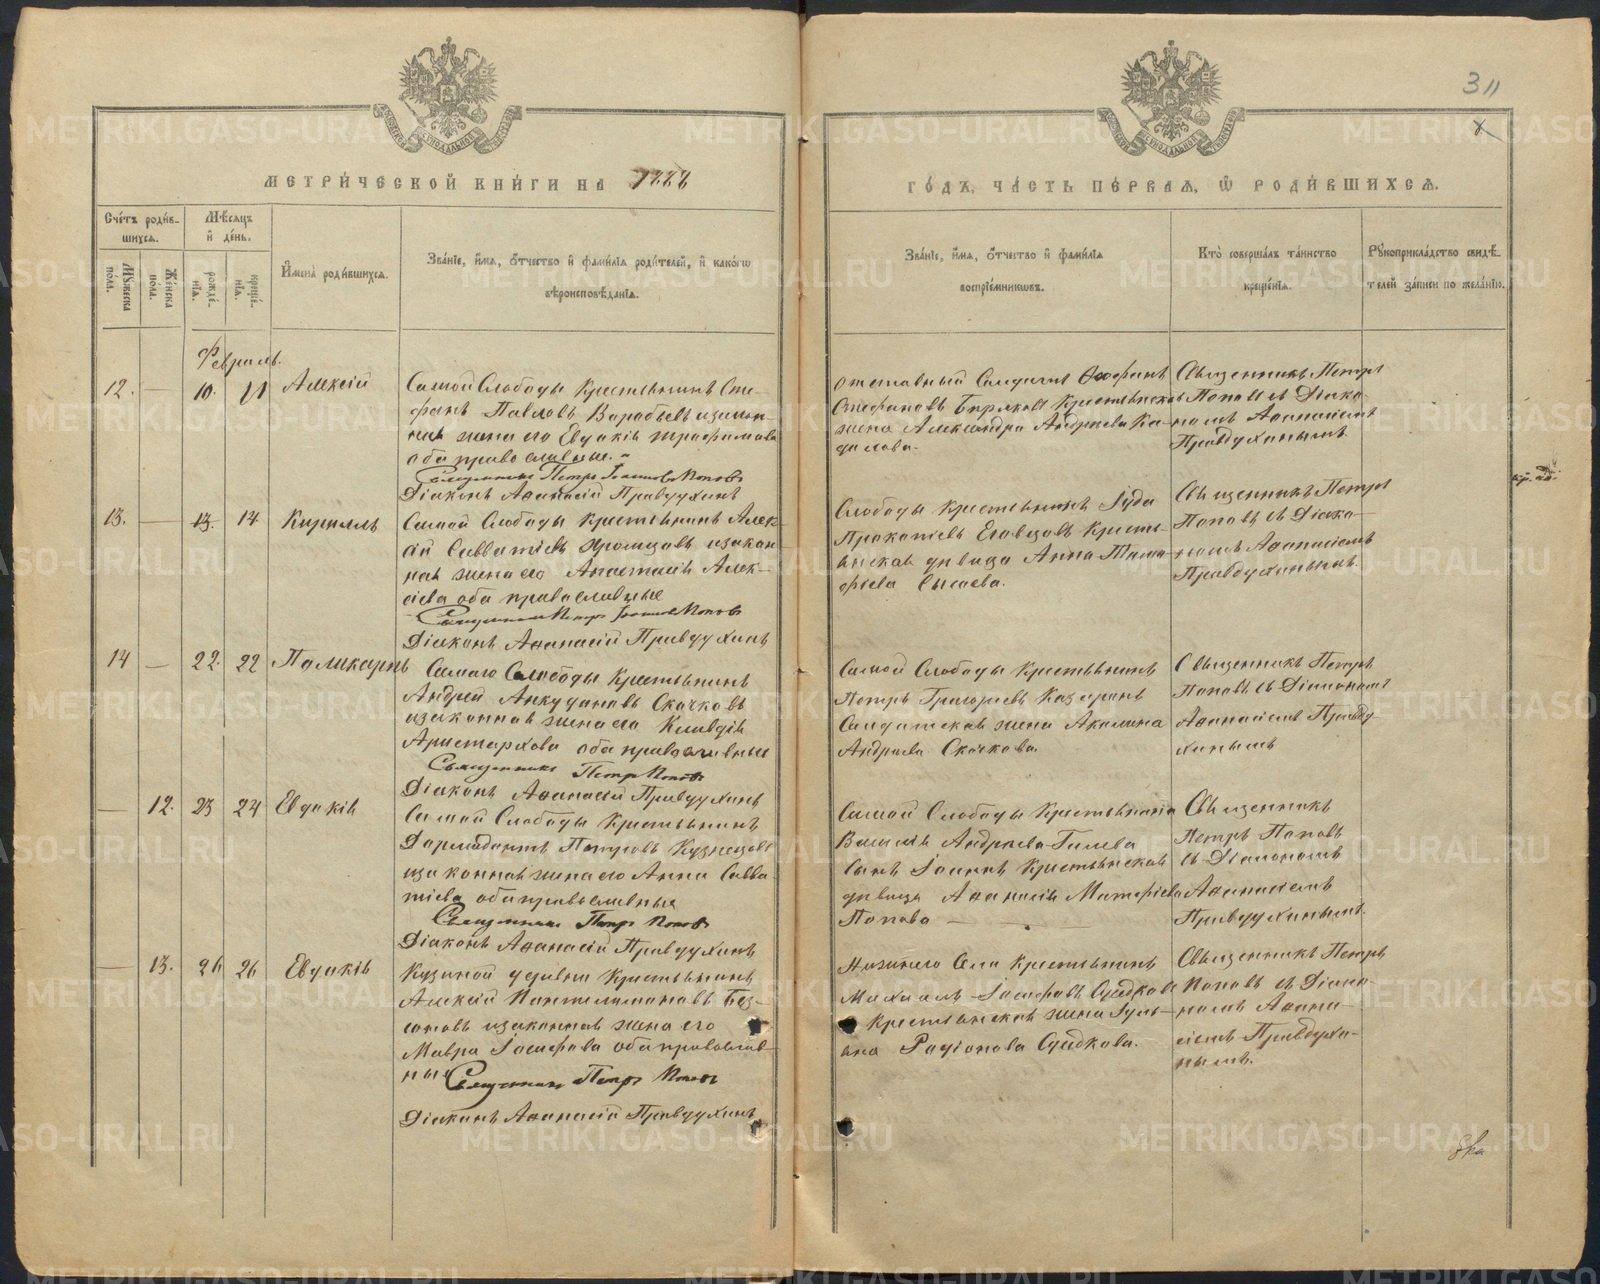 311
МЕТРИ́ЧЕСКОЙ КНИ́ГИ НА 1888
ГО́ДЪ, ЧА́СТЬ ПЕ́РВАЯ, Ѡ РОДИ́ВШИХСЯ.
Сче́тъ роди́в-
шихся.
Му́жеска
по́ла.
Же́нска
по́ла.
Мѣ́сяцъ
и де́нь.
рожде́-
нїя.
креще́-
нїя.
И́мена роди́вшихся.
Зва́нїе, и́мя, о́тчество и фами́лїя роди́телей, и како́гѡ
вѣроисповѣ́данїя.
Зва́нїе, и́мя, о́тчество и фами́лїя
воспрїе́мниковъ.
Кто̀ соверша́лъ та́инство
креще́нїя.
Рꙋкоприкла́дство свидѣ́-
телей за́писи по жела́нїю.
Февраль.
12. — 10. 11 Алексій
Самой Слободы Крестьянинъ Сте-
фанъ Павловъ Воробьевъ изакон-
ная жена его Евдокія Трофимова
оба православные.
Священникъ Петръ Іоанновъ Поповъ
Діаконъ Аѳанасій Правдухинъ
отставный Солдатъ
Стефановъ Бирюковъ Крестьянская
жена Александра Андреева Ка-
Священникъ Петръ
Поповъ съ Діако-
номъ Аѳанасіемъ
Правдухинымъ.
13. — 13. 14 Кириллъ
Самой Слободы Крестьянинъ Алек-
сій Савватіевъ Хромцовъ изакон-
ная жена его Анастасія Алек-
сіева оба православные
Священникъ Петръ Іоанновъ Поповъ
Діаконъ Аѳанасій Правдухинъ
Слободы Крестьянинъ Іуда
Прокопіевъ Крестья-
нская дѣвица Анна Тимо-
фѣева Сысоева.
Священникъ Петръ
Поповъ съ Діако-
номъ Аѳанасіемъ
Правдухинымъ.
14 — 22. 22 Поликарпъ
Самаго Слободы Крестьянинъ
Андрей Анкудиновъ Скачковъ
изаконная жена его Клавдія
Аристархова оба православные
Священникъ Петръ Поповъ
Діаконъ Аѳанасій Правдухинъ
Самой Слободы Крестьянинъ
Петръ Григорьевъ Казаринъ
Солдатская жена Акилина
Андреева Скачкова.
Священникъ Петръ
Поповъ съ Діакономъ
Аѳанасіемъ Правду-
хинымъ
— 12. 23 24 Евдокія
Самой Слободы Крестьянинъ
Дормидонтъ Петровъ Кузнецовъ
изаконная жена его Анна Савва-
тіева оба православные
Священникъ Петръ Поповъ
Діаконъ Аѳанасій Правдухинъ
Самой Слободы Крестьянина
Василія Андреева Гилева
Сынъ Іоаннъ Крестьянская
дѣвица Аѳанасія Матфіева
Попова —
Священникъ
Петръ Поповъ
съ Діакономъ
Аѳанасіемъ
Правдухинымъ.
— 13. 26 26 Евдокія
Кузиной деревни Крестьянинъ
Алексій Пантелимоновъ Без-
соновъ изаконная жена его
Мавра Іосифова оба православ-
ные Священникъ Петръ Поповъ
Діаконъ Аѳанасій Правдухинъ
Села Крестьянинъ
Михаилъ Іосифовъ Сѣдковъ
Крестьянская жена Іулі-
ана Родіонова Сѣдкова.
Священникъ Петръ
Поповъ съ Діако-
номъ Аѳана-
сіемъ Правдухи-
нымъ.
METRIKI.GASO-URAL.RU